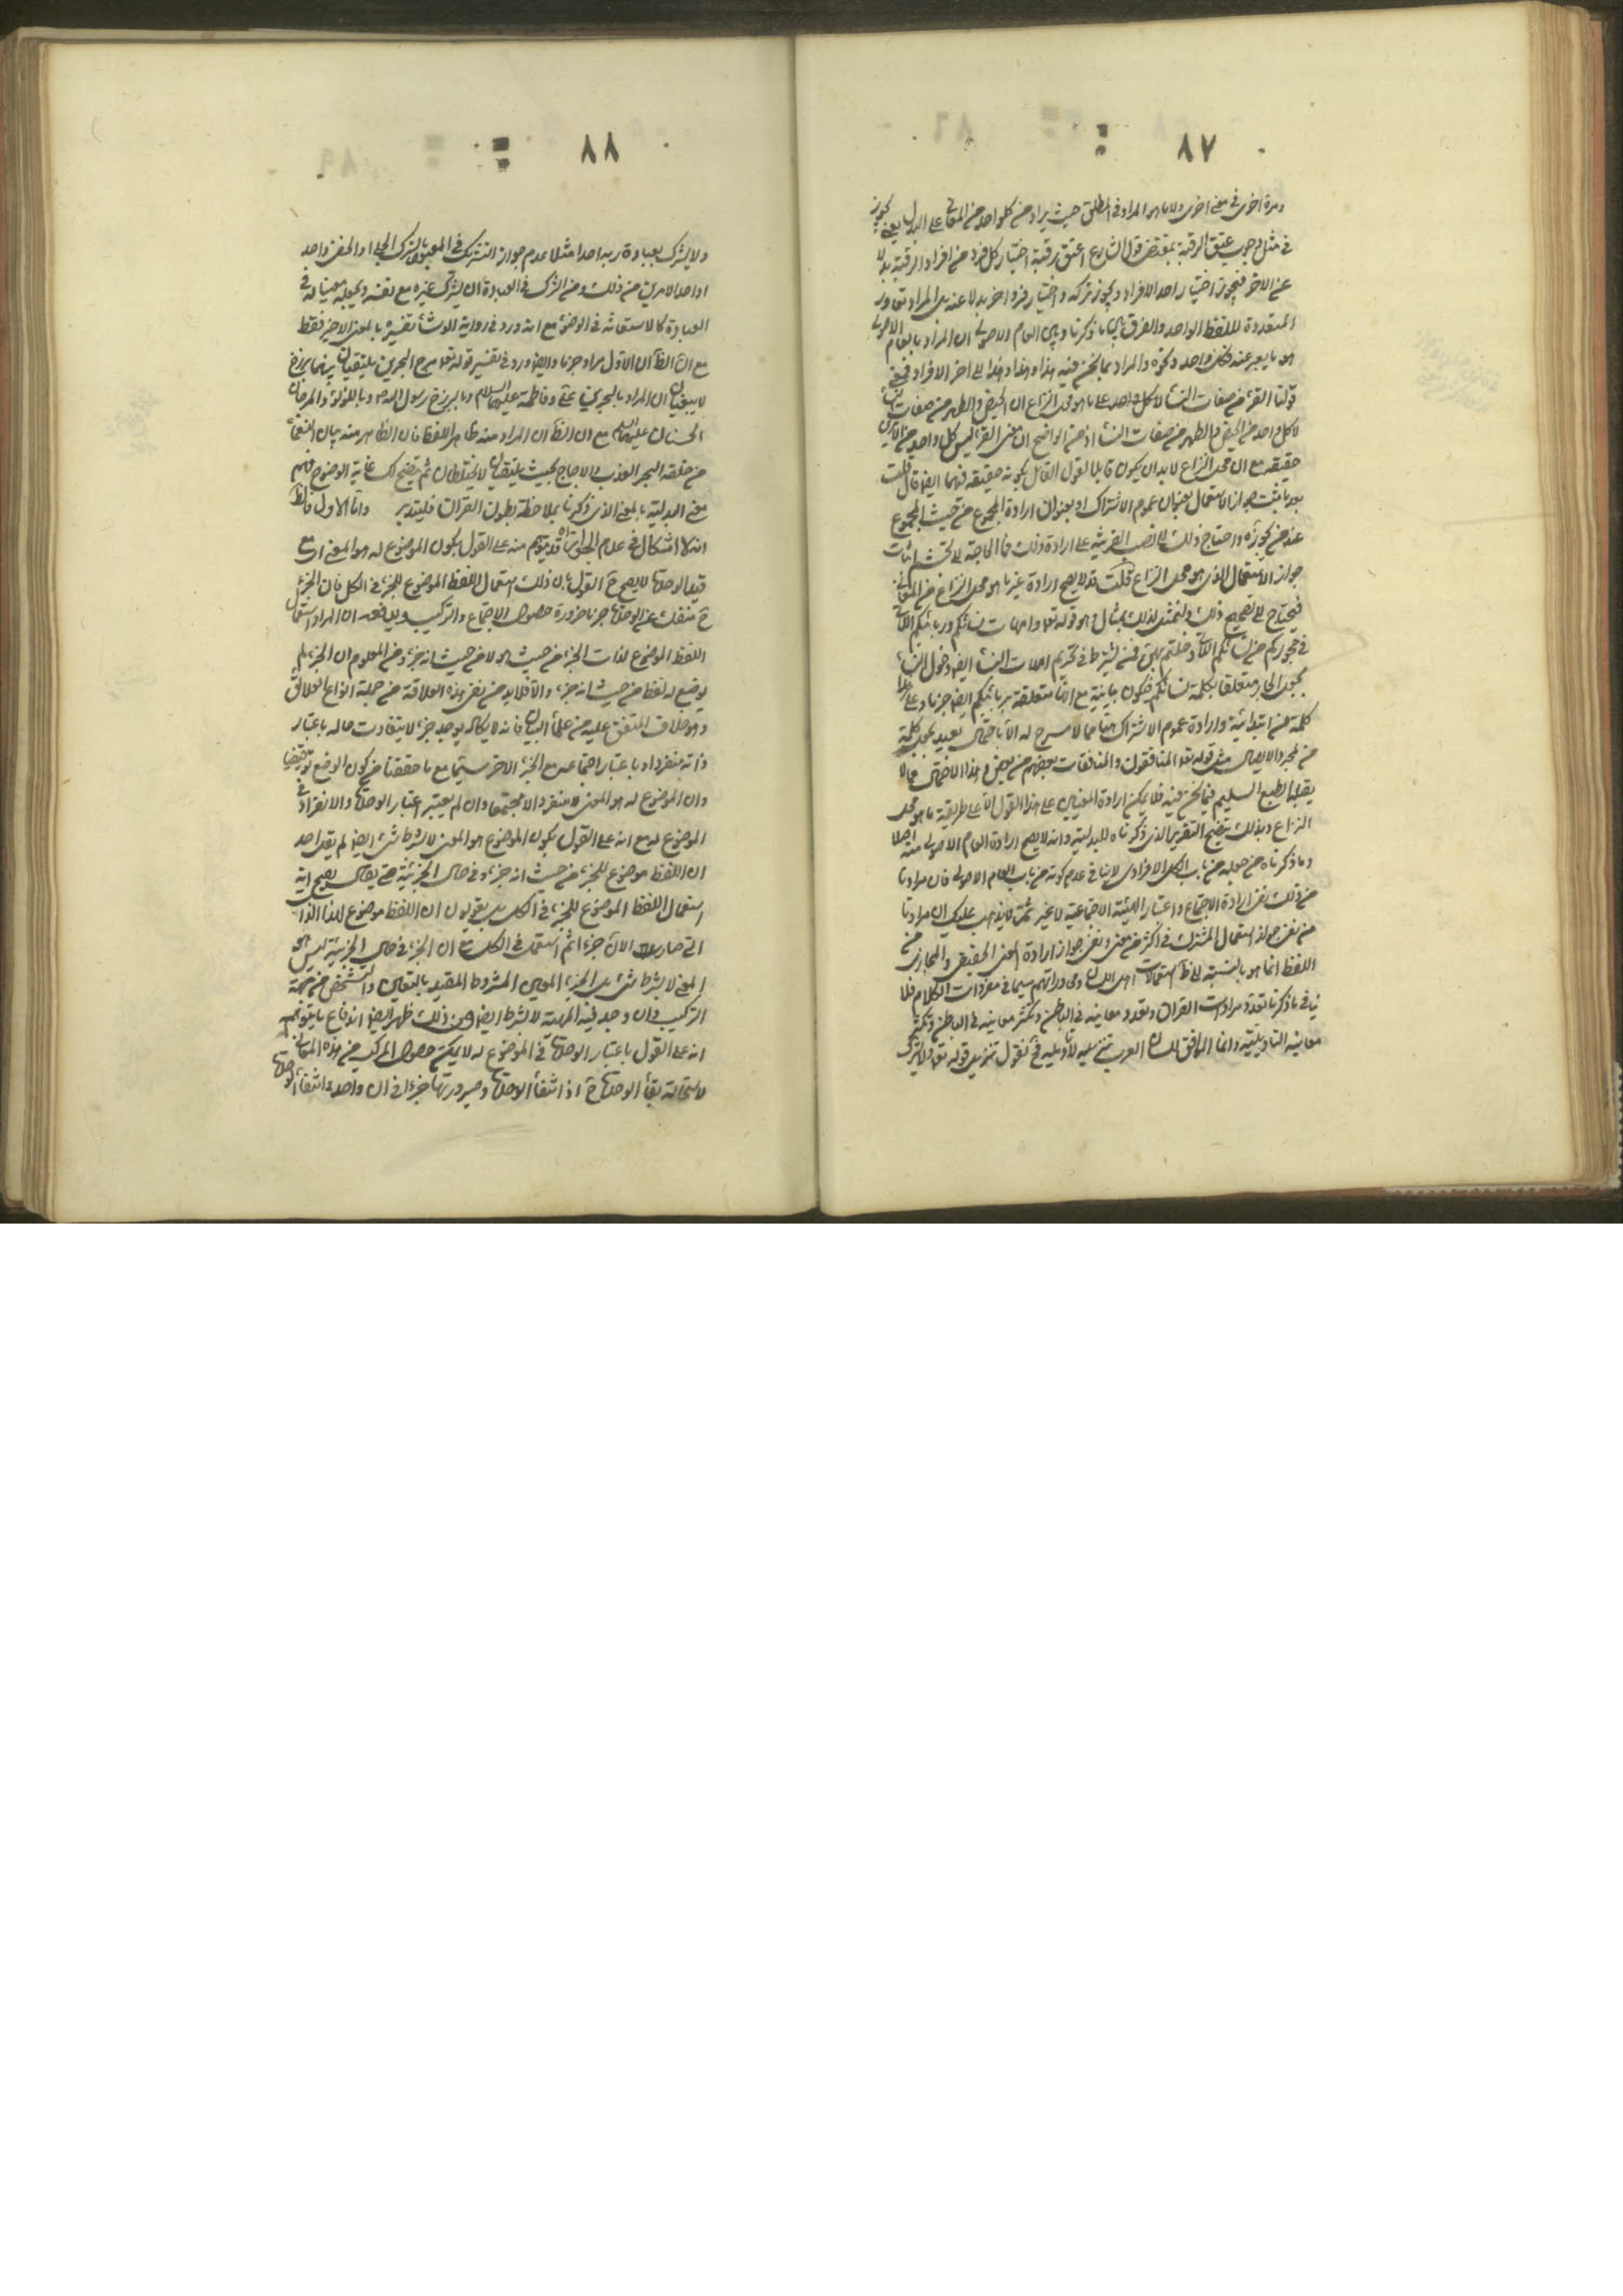 ٨٧
ومرة اخرى في معنى اخرى ولا ما هو المراد في المطلق حيث يراد منه كل واحد من المعاني على البدل يعني يجوز
في مثل وجوب عتق الرقبة بمقتضى قول الشارع اعتق رقبة اختيار كل فرد من افراد الرقبة بدلا
عن الاخر فيجوز اختيار احد الافراد ويجوز تركه واختيار فرد اخر بدلا عنه بل المراد
المتعددة للفظ الواحد والفرق بين ما ذكرنا وبين العام الاصولي ان المراد بالعام الاصولي
هو ما يعبر عنه بكل واحد ونحوه والمراد بما نحن فيه هذا وهذا وهذا الى اخر الافراد فمعنى
قولنا القرء من صفات النساء لا كل واحد على ما هو محل النزاع ان الحيض والطهر من صفات النساء
لا كل واحد من الحيض والطهر من صفات النساء اذ من الواضح ان معنى القرء ليس كل واحد من الامرين
حقيقة مع ان محل النزاع لا بد ان يكون قابلا لقول القائل بكونه حقيقة فيهما ايضا فان قلت
بعد ما ثبت جواز الاستعمال بعنوان عموم الاشتراك او بعنوان ارادة المجموع من حيث المجموع
عند من يجوزه واحتاج ذلك الى نصب القرينة على ارادة ذلك فما الحاجة الى تجشم اثبات
جواز الاستعمال الذي هو محل النزاع قلت قد لا يصح ارادة غير ما هو محل النزاع من المعاني
فيحتاج الى تصحيح ذلك ولنمثل لذلك بمثال وهو قوله تعالى وامهات نسائكم وربائبكم اللاتي
في حجوركم من نسائكم اللاتي دخلتم بهن فمن يشترط في تحريم امهات النساء ايضا دخول النساء
يجعل الجار متعلقا بكلمة نسائكم فيكون بيانية مع انها متعلقة بربائبكم ايضا جزما وعلى هذا
كلمة من ابتدائية وارادة عموم الاشتراك هنا مما لا مسرح له الا باحتمال بعيد بجعل كلمة
من لمجرد الاتصال مثل قوله تعالى المنافقون والمنافقات بعضهم من بعض وهذا الاحتمال مما لا
يقبله الطبع السليم فيما نحن فيه فلا يمكن ارادة المعنيين على هذا القول الا على طريقة ما هو محل
النزاع وبذلك يتضح التقرير الذي ذكرناه للبدلية وانه لا يصح ارادة العام الاصولي منه اصلا
وما ذكرناه من جعله من باب الكل الافرادي لا ينافي عدم كونه من باب العام الاصولي فان مرادنا
من ذلك نفي ارادة الاجتماع واعتبار الهيئة الاجتماعية لا غير ثم لا يذهب عليك ان مرادنا
من نفي جواز استعمال المشترك في اكثر من معنى ونفي جواز ارادة المعنى الحقيقي والمجازي من
اللفظ انما هو بالنسبة الى ظاهر استعمالات اهل اللسان ومحاوراتهم سيما في مفردات الكلام فلا
ينافي ما ذكرنا تعدد مرادات القرآن وتعدد معانيه في الباطن وتكثر معانيه في الباطن وتكثر
معانيه التأويلية وانما الموافق للسان العرب تنزيله لا تأويله فنقول تنزيل قوله تعالى ولا يشرك
٨٨
ولا يشرك بعبادة ربه احدا مثلا عدم جواز التشريك في المعبود بالشرك الجلي او الخفي واحد
او احد الامرين من ذلك ومن الشرك في العبادة ان يشرك غيره مع نفسه ويجعله معينا له في
العبادة كالاستعانة في الوضوء مع انه ورد في رواية الوشاء تفسيره بالمعنى الاخير فقط
مع ان الظاهر ان الاول مراد جزما وايضا ورد في تفسير قوله تعالى مرج البحرين يلتقيان بينهما برزخ
لا يبغيان ان المراد بالبحرين علي وفاطمة عليهما السلام وبالبرزخ رسول الله ص وباللؤلؤ والمرجان
الحسنان عليهما السلام مع ان الظاهر ان المراد منه ظاهر اللفظ فان الظاهر منه بيان النعماء
من خلقه البحر العذب والاجاج بحيث يلتقيان لا يختلطان ثم يتضح لك غاية الوضوح فهم
معنى البدلية بالمعنى الذي ذكرنا بملاحظة بطون القرآن فليتدبر واما الاول فالظ
انه لا اشكال في عدم الجواز قد يتوهم منه على القول بكون الموضوع له هو المعنى مع
قيد الوحدة لا يصح ح القول بان ذلك استعمال اللفظ الموضوع للجزء في الكل فان الجزء
ح منفك عن الوحدة جزما ضرورة حصول الاجتماع والتركيب ويدفعه ان المراد استعمال
اللفظ الموضوع لذات الجزء من حيث هو لا من حيث انه جزء ومن المعلوم ان الجزء لم
يوضع له لفظ من حيث انه جزء والا فلا بد من نفي هذه العلاقة من جملة انواع العلائق
وهو خلاف المتفق عليه من علماء البيان فانه لا يكاد يوجد جزء لا يتفاوت حاله باعتبار
ذاته منفردا وباعتبار اجتماعه مع الجزء الاخر سيما مع ما حققنا من كون الوضع توقيفيا
وان الموضوع له هو المعنى لا منفردا لا مجتمعا وان لم يعتبر اعتبار الوحدة والانفراد في
الموضوع له مع انه على القول بكون الموضوع هو المعنى لا بشرط شيء ايضا لم يقل احد
ان اللفظ موضوع للجزء من حيث انه جزء وفي حال الجزئية حتى يقال يصح انه
استعمال اللفظ الموضوع للجزء في الكل بل يقولون ان اللفظ موضوع لهذا الذات
التي صارت الان جزء ثم استعمل في الكل مع ان الجزء في حال الجزئية ليس هو
المعنى لا بشرط شيء بل الجزء المعين المشروط المقيد بالتعين والتشخص من جهة
التركيب وان وجد فيه المهية لا بشرط ايضا ومن ذلك ظهر ايضا اندفاع ما يتوهم
انه على القول باعتبار الوحدة في الموضوع له لا يمكن حصول المركب من هذه المعاني
لاستحالة بقاء الوحدة ح اذ انتفاء الوحدة وصيرورتها جزءا في ان واحد وانتفاء الوحدة